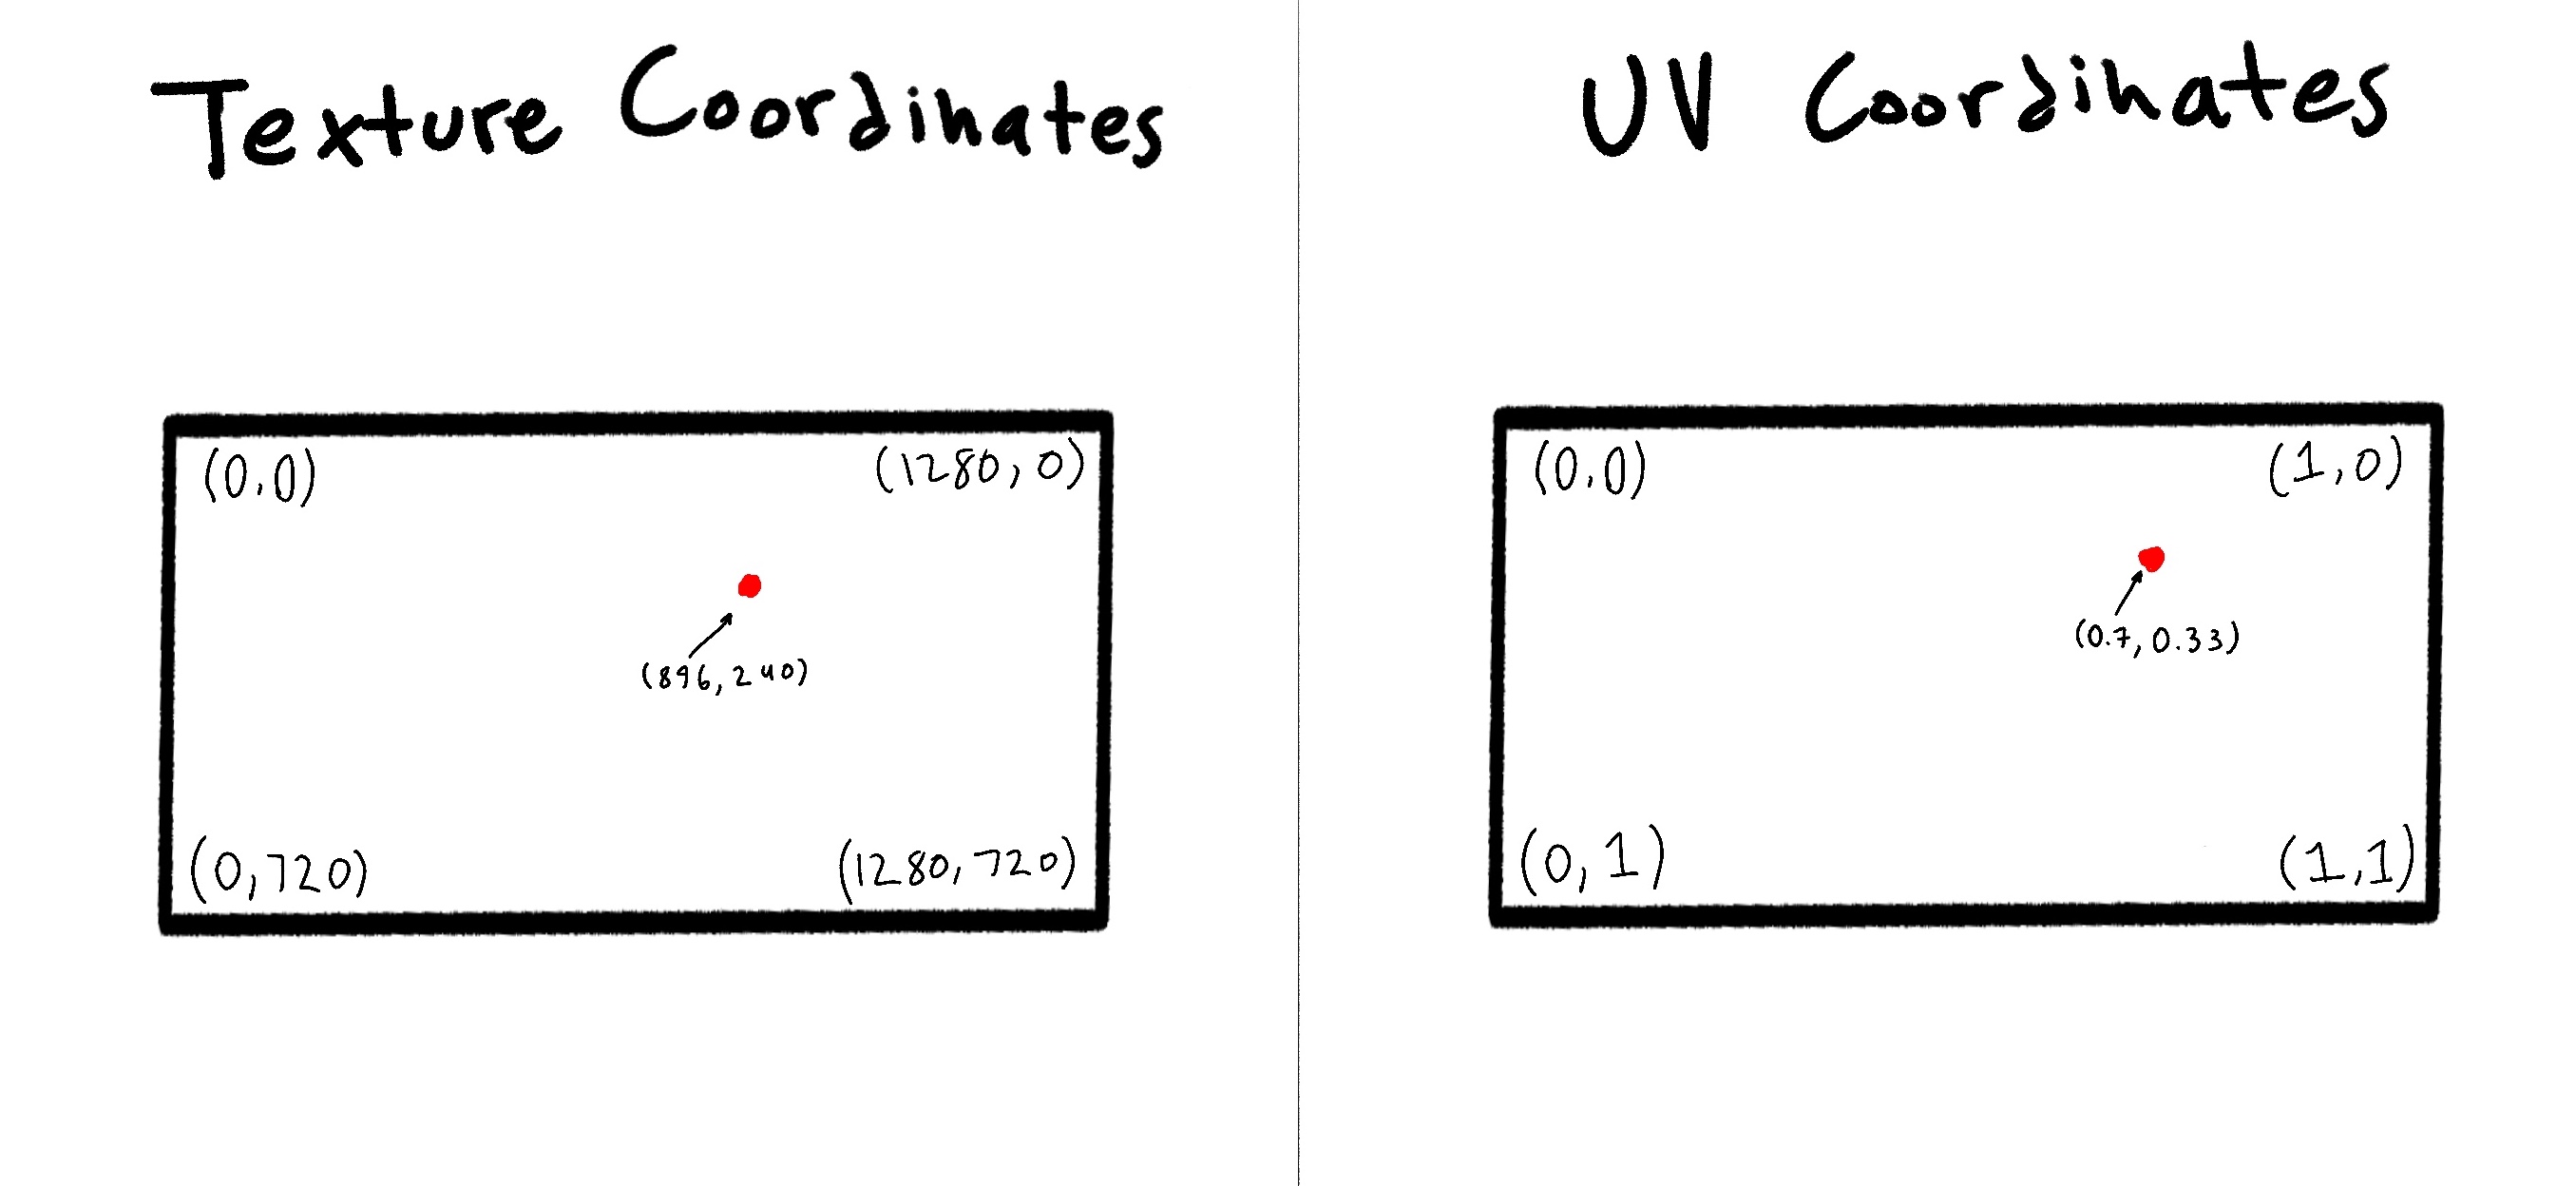 Texture Coordinates
(0,0)
(1280, 0)
(896, 240)
(0,720)
(1280, 720)
UV Coordinates
(0,0)
(1,0)
(0.7, 0.33)
(0, 1)
(1,1)